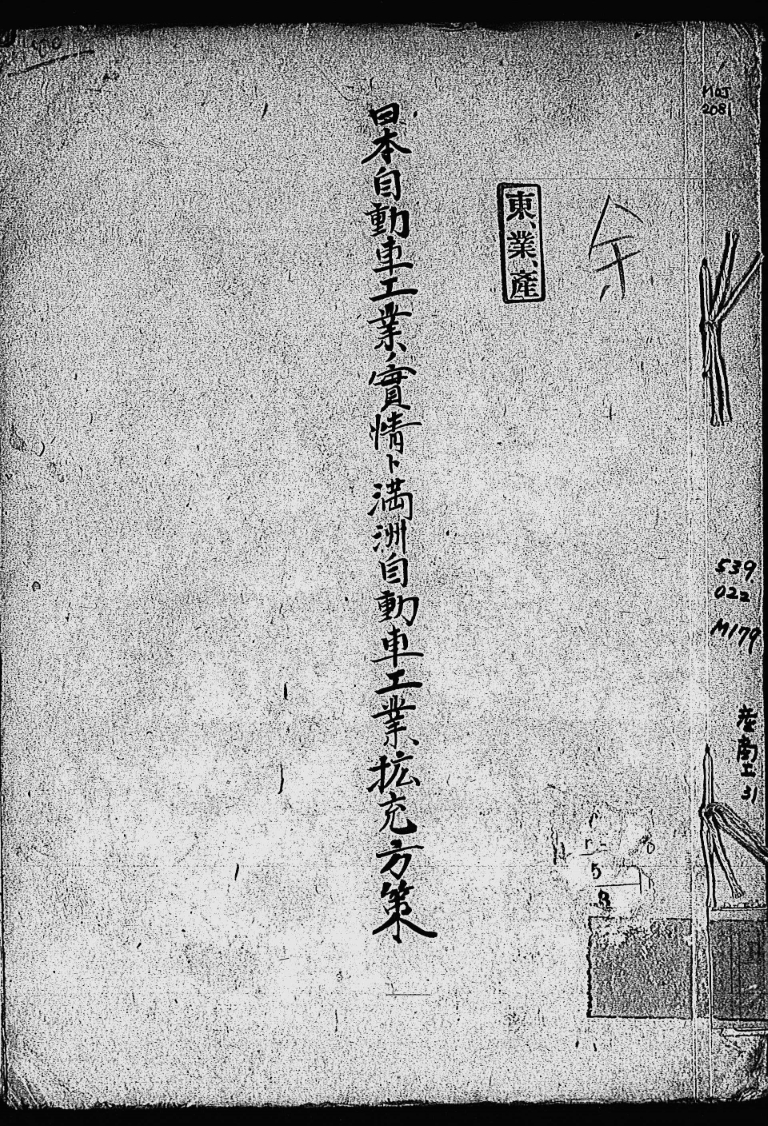 MOJ
2081
余
東、業、産
日本自動車工業ノ實情ト満洲自動車工業拡充方策
539
022
M179
産南工
31
5
8